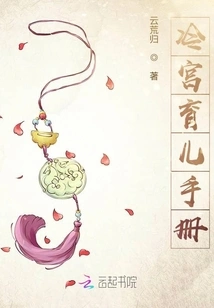 冷宫育儿手册
云荒归
◎
著
云起书院